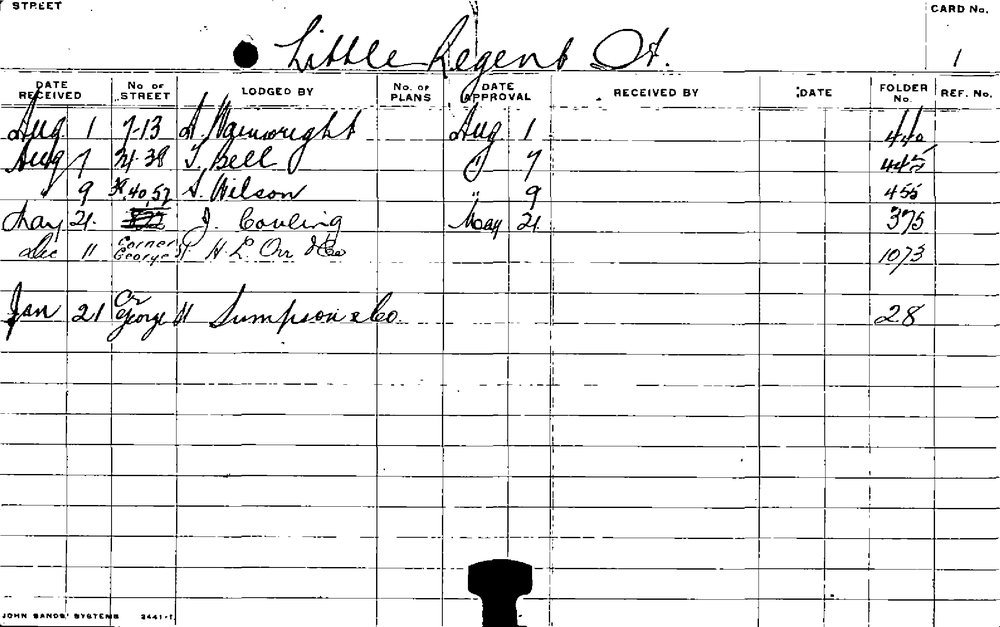 STREET CARD No.
Little Regent St. 1
DATE RECEIVED No OF STREET LODGED BY No. OF PLANS DATE APPROVAL RECEIVED BY DATE FOLDER No. REF. No.
Aug 1 7-13 A Wainwright Aug 1 440
Aug 7 T. Bell " 7 445
" 9 40, 52 S. Wilson " 9 455
May 21. J. Couling May 21. 375
Dec 11 Corner George St H. L. Orr & Co 1073
Jan 21 Cr George St Sumpson & Co. 28
JOHN SANDS' SYSTEMS 3441-1